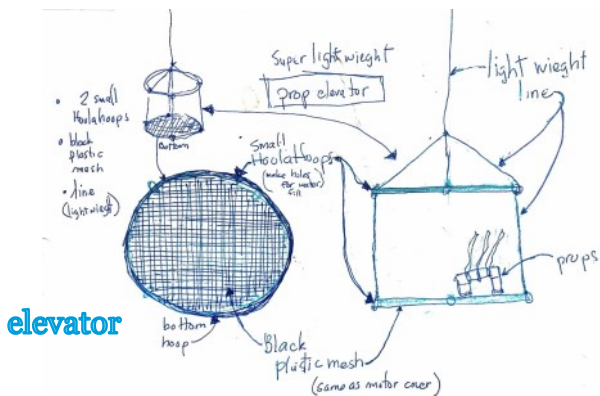 Super lightwieght
prop elevator
light wieght
line
• 2 small
Hoolahoops
• black
plastic
mesh
• line
(lightwieght)
Bottom
Small
Hoolahoops
(make holes
for water
fill
props
elevator
bottom
hoop
Black
plastic mesh
(same as motor cover)